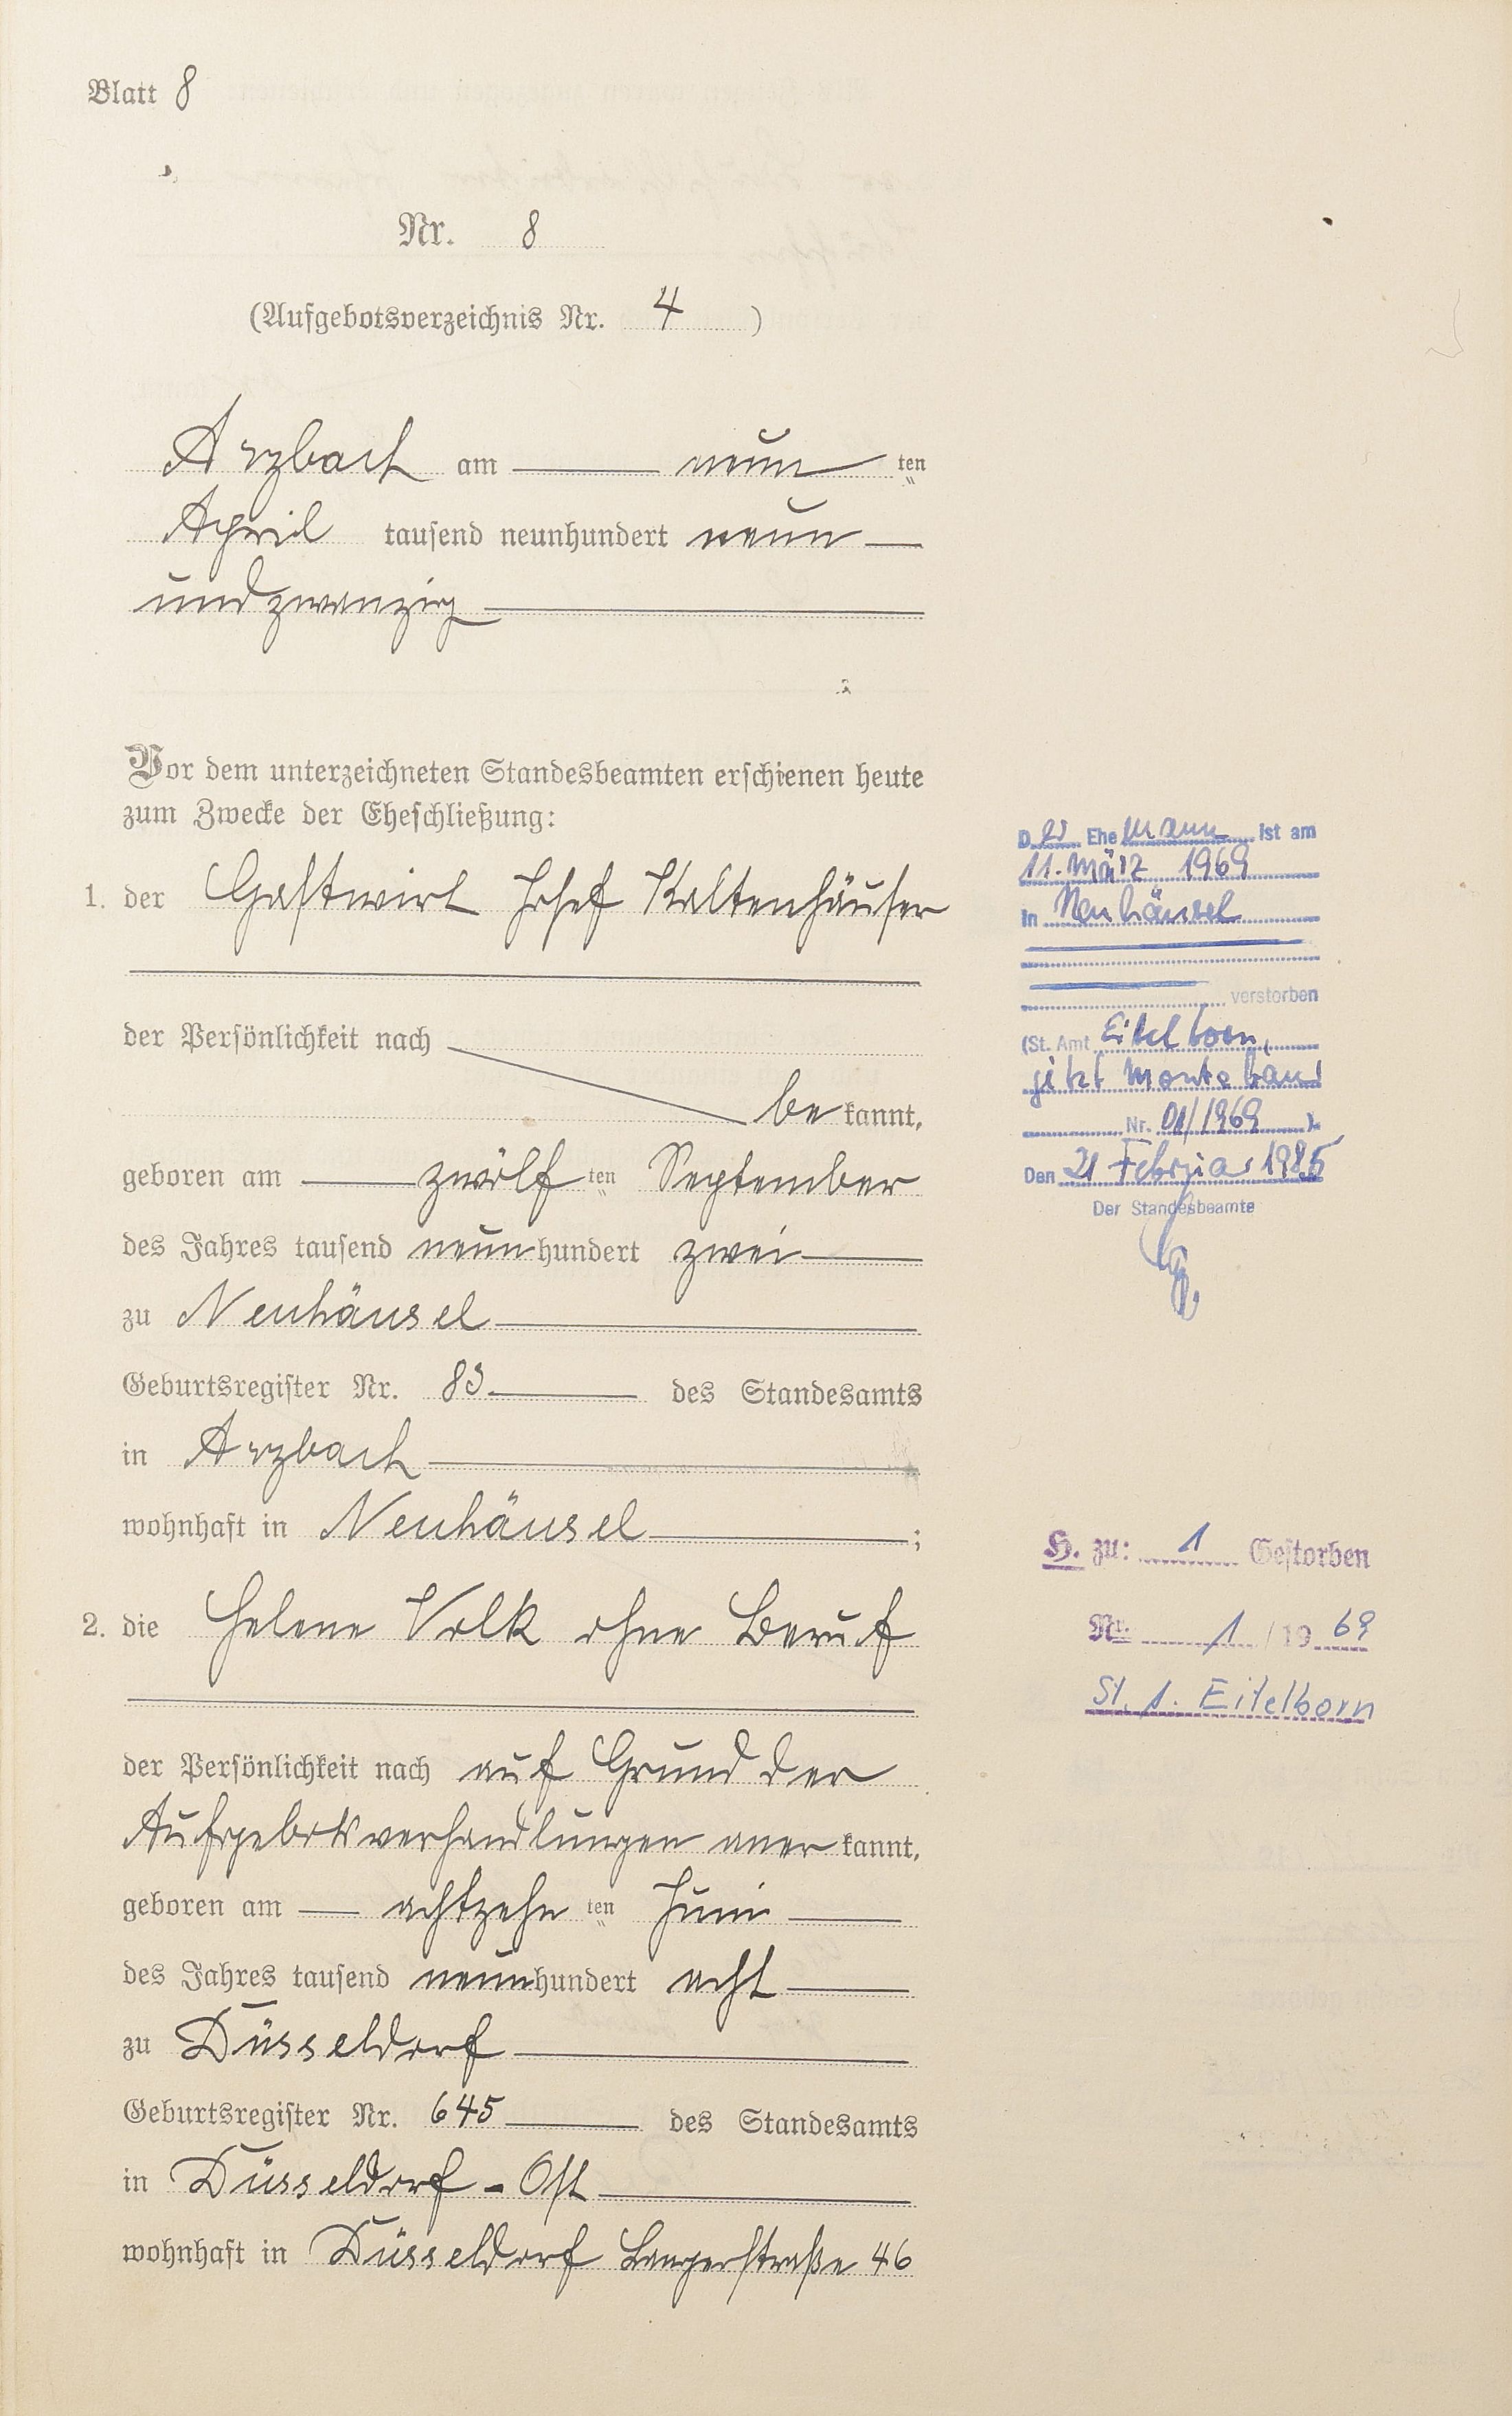 Blatt 8
Nr. 8
(Aufgebotsverzeichnis Nr. 4 )
Arzbach am neun ten
April tausend neunhundert neun
undzwanzig
Vor dem unterzeichneten Standesbeamten erschienen heute
zum Zwecke der Eheschließung:
1. der Gastwirt Josef Kaltenhäuser
der Persönlichkeit nach
be kannt,
geboren am zwölf ten September
des Jahres tausend neun hundert zwei
zu Neuhäusel
Geburtsregister Nr. 83 des Standesamts
in Arzbach
wohnhaft in Neuhäusel ;
2. die Helene Volk ohne Beruf
der Persönlichkeit nach auf Grund der
Aufgebotsverhandlungen aner kannt,
geboren am achtzehn ten Juni
des Jahres tausend neun hundert acht
zu Düsseldorf
Geburtsregister Nr. 645 des Standesamts
in Düsseldorf - Ost
wohnhaft in Düsseldorf 46
D er Ehe mann ist am
11. März 1969
in Neuhäusel
verstorben
(St. Amt Eitelborn,
jetzt Montabaur
Nr. 01/1969 ).
Den 21 Februar 1985
Der Standesbeamte
H. zu: 1 Gestorben
Nr. 1 / 19 69
St. A. Eitelborn